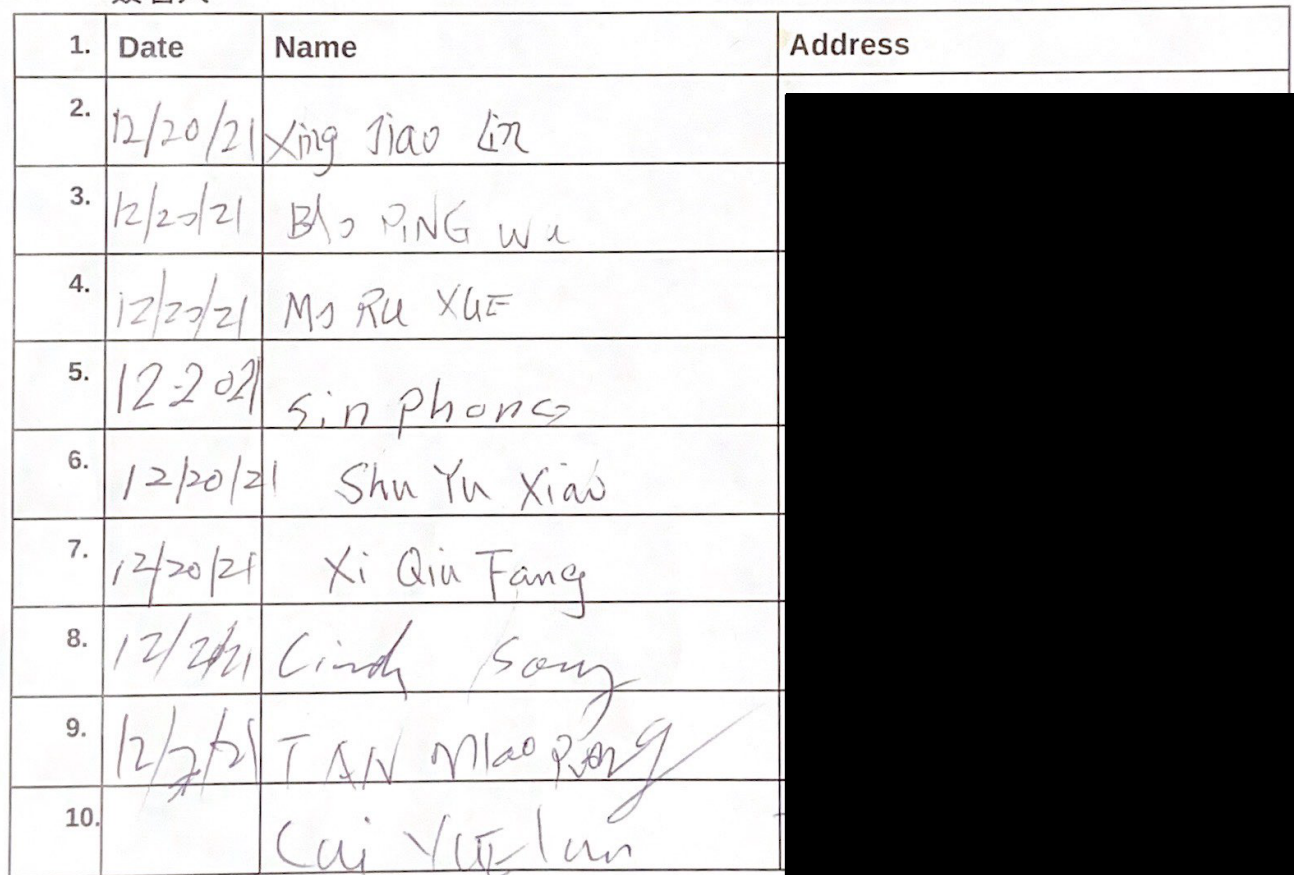 1. Date Name Address
2. 12/20/21 Xing Jiao Lin
3. 12/20/21 BAO PiNG Wu
4. 12/20/21 Mo RU XUE
5. 12-2021 Sin Phong
6. 12/20/21 Shu Yu Xiao
7. 12/20/21 Xi Qiu Fang
8. 12/21 Cindy Song
9. TAN Miao
10. Cai YUE lun